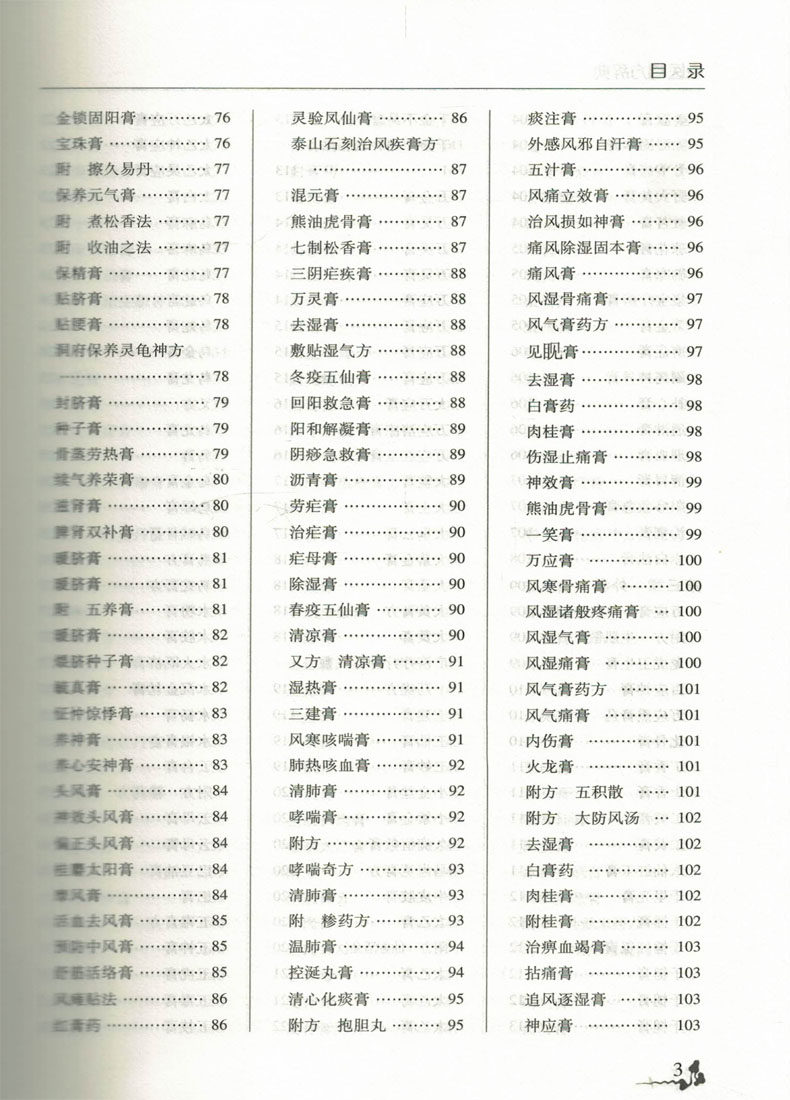 目 录
金锁固阳膏 ………… 76
宝珠膏 ……………… 76
附 擦久易丹 ……… 77
保养元气膏 ………… 77
附 煮松香法 ……… 77
附 收油之法 ……… 77
保精膏 ……………… 77
贴脐膏 ……………… 78
贴腰膏 ……………… 78
洞府保养灵龟神方
……………………… 78
封脐膏 ……………… 79
种子膏 ……………… 79
骨蒸劳热膏 ………… 79
续气养荣膏 ………… 80
滋肾膏 ……………… 80
脾肾双补膏 ………… 80
暖脐膏 ……………… 81
暖脐膏 ……………… 81
附 五养膏 ………… 81
暖脐膏 ……………… 82
煖脐种子膏 ………… 82
毓真膏 ……………… 82
怔忡惊悸膏 ………… 83
养神膏 ……………… 83
养心安神膏 ………… 83
头风膏 ……………… 84
神效头风膏 ………… 84
偏正头风膏 ………… 84
桂麝太阳膏 ………… 84
摩风膏 ……………… 84
活血去风膏 ………… 85
预防中风膏 ………… 85
舒筋活络膏 ………… 85
风瘫贴法 …………… 86
红膏药 ……………… 86
灵验凤仙膏 ………… 86
泰山石刻治风疾膏方
……………………… 87
混元膏 ……………… 87
熊油虎骨膏 ………… 87
七制松香膏 ………… 87
三阴疟疾膏 ………… 88
万灵膏 ……………… 88
去湿膏 ……………… 88
敷贴湿气方 ………… 88
冬疫五仙膏 ………… 88
回阳救急膏 ………… 88
阳和解凝膏 ………… 89
阴痧急救膏 ………… 89
沥青膏 ……………… 89
劳疟膏 ……………… 90
治疟膏 ……………… 90
疟母膏 ……………… 90
除湿膏 ……………… 90
春疫五仙膏 ………… 90
清凉膏 ……………… 90
又方 清凉膏 ……… 91
湿热膏 ……………… 91
三建膏 ……………… 91
风寒咳喘膏 ………… 91
肺热咳血膏 ………… 92
清肺膏 ……………… 92
哮喘膏 ……………… 92
附方 ………………… 92
哮喘奇方 …………… 93
清肺膏 ……………… 93
附 糁药方 ………… 93
温肺膏 ……………… 94
控涎丸膏 …………… 94
清心化痰膏 ………… 95
附方 抱胆丸 ……… 95
痰注膏 ……………… 95
外感风邪自汗膏 …… 95
五汁膏 ……………… 96
风痛立效膏 ………… 96
治风损如神膏 ……… 96
痛风除湿固本膏 …… 96
痛风膏 ……………… 96
风湿骨痛膏 ………… 97
风气膏药方 ………… 97
见睨膏 ……………… 97
去湿膏 ……………… 98
白膏药 ……………… 98
肉桂膏 ……………… 98
伤湿止痛膏 ………… 98
神效膏 ……………… 99
熊油虎骨膏 ………… 99
一笑膏 ……………… 99
万应膏 …………… 100
风寒骨痛膏 ……… 100
风湿诸般疼痛膏 … 100
风湿气膏 ………… 100
风湿痛膏 ………… 100
风气膏药方 ……… 101
风气痛膏 ………… 101
内伤膏 …………… 101
火龙膏 …………… 101
附方 五积散 …… 101
附方 大防风汤 … 102
去湿膏 …………… 102
白膏药 …………… 102
肉桂膏 …………… 102
附桂膏 …………… 102
治痹血竭膏 ……… 103
拈痛膏 …………… 103
追风逐湿膏 ……… 103
神应膏 …………… 103
3